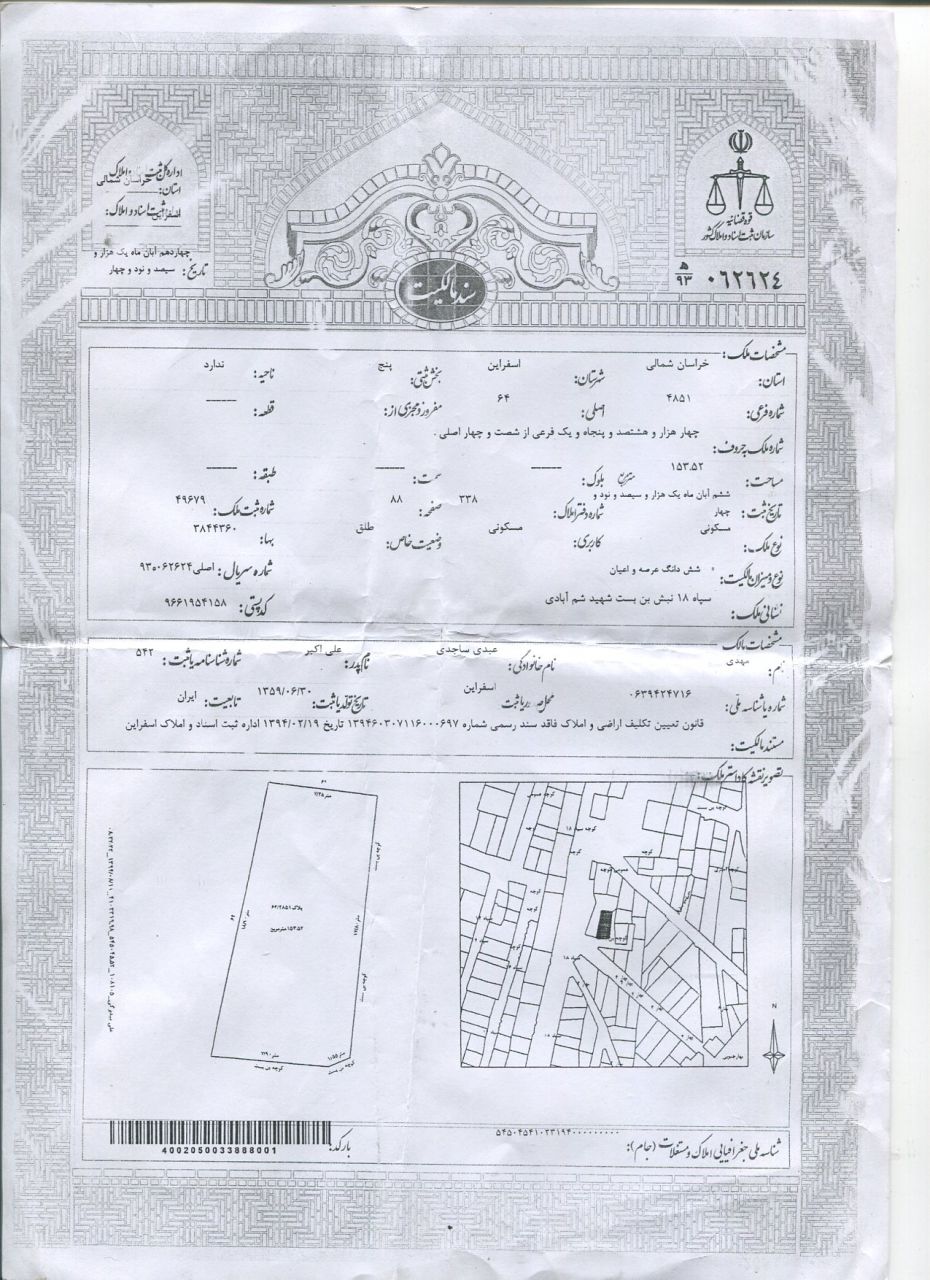 اداره کل ثبت اسناد و املاک
استان: خراسان شمالی
ثبت اسناد و املاک: اسفراین
تاریخ: چهاردهم آبان ماه یک هزار و سیصد و نود و چهار
قوه قضائیه
سازمان ثبت اسناد و املاک کشور
۰۶۲۶۲٤ ه‍/۹۳
سند مالکیت
مشخصات ملک:
استان: خراسان شمالی شهرستان: اسفراین بخش ثبتی: پنج ناحیه: ندارد
شماره فرعی: ۴۸۵۱ اصلی: ۶۴ مفروز و مجزی از: قطعه: ------
شماره ملک به حروف: چهار هزار و هشتصد و پنجاه و یک فرعی از شصت و چهار اصلی .
مساحت: ۱۵۳.۵۲ مترمربع بلوک: ------ سمت: ------ طبقه: ------
تاریخ ثبت: ششم آبان ماه یک هزار و سیصد و نود و چهار شماره دفتر املاک: ۳۳۸ صفحه: ۸۸ شماره ثبت ملک: ۴۹۶۷۹
نوع ملک: مسکونی کاربری: مسکونی وضعیت خاص: طلق بها: ۳۸۴۴۳۶۰
نوع و میزان مالکیت: شش دانگ عرصه و اعیان شماره سریال: اصلی ۹۳۰۶۲۶۲۴
نشانی ملک: سپاه ۱۸ نبش بن بست شهید شم آبادی کدپستی: ۹۶۶۱۹۵۴۱۵۸
مشخصات مالک
نام: مهدی نام خانوادگی: عبدی ساجدی نام پدر: علی اکبر شماره شناسنامه یا ثبت: ۵۴۲
شماره یا شناسه ملّی: ۰۶۳۹۴۲۴۷۱۶ محل صدور یا ثبت اسفراین تاریخ تولد یا ثبت: ۱۳۵۹/۰۶/۳۰ تابعیت: ایران
مستند مالکیت: قانون تعیین تکلیف اراضی و املاک فاقد سند رسمی شماره ۱۳۹۴۶۰۳۰۷۱۱۶۰۰۰۶۹۷ تاریخ ۱۳۹۴/۰۲/۱۹ اداره ثبت اسناد و املاک اسفراین
تصویر نقشه کاداستر ملک:
پلاک ۶۴/۴۸۵۱
۱۵۳.۵۲ مترمربع
کوچه بن بست
کوچه بن بست
کوچه عمومی
کوچه بن بست
کوچه سپاه ۱۸
کوچه
کوچه
N
شناسه ملی جغرافیایی املاک و مستغلات (جام): ۵۴۵۰۴۵۴۱۰۲۳۱۹۴۰۰۰۰۰۰۰۰۰
بارکد:
4002050033888001